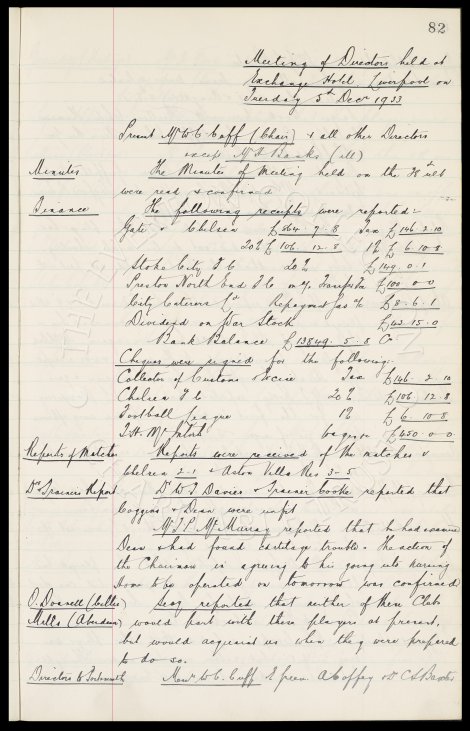 82
Meeting of Directors held at
Exchange Hotel Liverpool on
Tuesday 5th Decr 1933
Present Mr W.C. Cuff (Chair) & all other Directors
except Mr A Banks (ill)
Minutes The Minutes of Meeting held on the 28th ult
were read & confirmed
Finance The following receipts were reported:-
Gate v Chelsea £864. 7. 8 Tax £146. 2. 10
20% £106. 12. 8 1% £6. 10. 8
Stoke City F C 20% £149. 0. 1
Preston North End F.C. Transfer £100. 0. 0
City Caterers Ld Repayment £8. 6. 1
Dividend on War Stock £43. 15. 0
Bank Balance £13849. 5. 8 Cr
Cheques were signed for the following:-
Collector of Customs & Excise Tax £146. 2. 10
Chelsea F C 20% £106. 12. 8
Football League 1% £6. 10. 8
T.H. McIntosh wages £450. 0. 0
Reports of Matches Reports were received of the matches v
Chelsea 2-1 & Aston Villa Res 3-5
Dr & Trainers Report Dr W.J. Davies & Trainer Cooke reported that
Coggins & Dean were unfit
Mr J.P. McMurray reported that he had examined
Dean & had found cartilage trouble. The action of
the Chairman in agreeing to his going into nursing
Home to be operated on tomorrow was confirmed
O.Donnell (Celtic) Secy reported that neither of these Clubs
Mills (Aberdeen) would part with these players at present,
but would acquaint us when they were prepared
to do so.
Directors to Portsmouth Messrs W.C. Cuff E Green. A Coffey & Dr C S Baxter